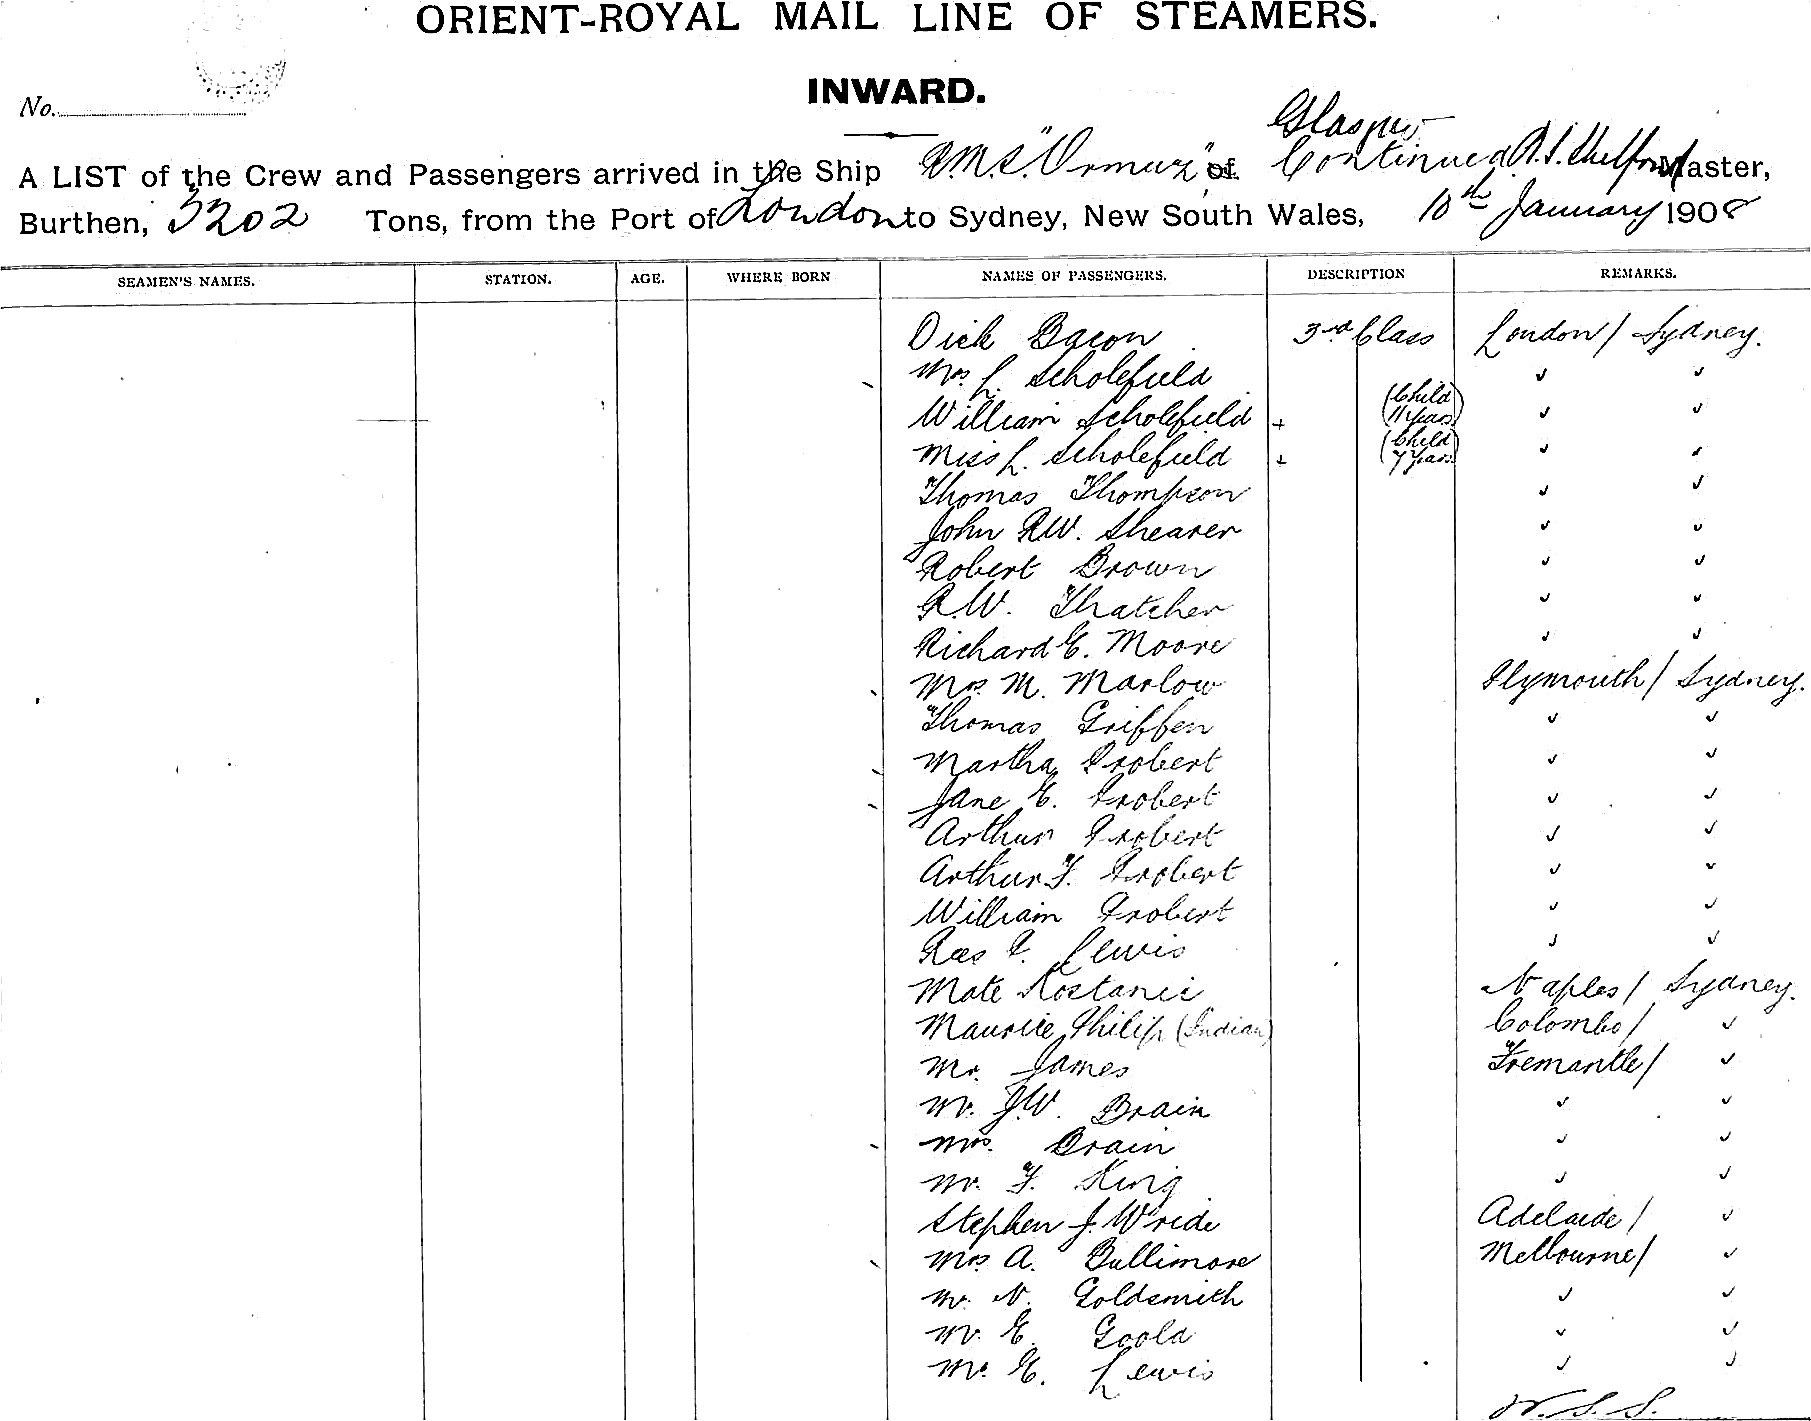 ORIENT-ROYAL MAIL LINE OF STEAMERS.
INWARD.
No.
Glasgow
A LIST of the Crew and Passengers arrived in the Ship R.M.S. "Ormuz" of Continued A.S. Shelford Master,
Burthen, 3202 Tons, from the Port of London to Sydney, New South Wales, 10th January 1908
SEAMEN'S NAMES. STATION. AGE. WHERE BORN NAMES OF PASSENGERS. DESCRIPTION REMARKS.
Dick Bacon 3rd Class London / Sydney.
Mrs. L. Scholefield ✓ ✓
William Scholefield + (Child 11 Years) ✓ ✓
Miss L. Scholefield + (Child 7 Years) ✓ ✓
Thomas Thompson ✓ ✓
John R.W. Shearer ✓ ✓
Robert Brown ✓ ✓
R.W. Thatcher ✓ ✓
Richard E. Moore ✓ ✓
Mrs. M. Marlow Plymouth / Sydney.
Thomas Griffen ✓ ✓
Martha Probert ✓ ✓
Jane E. Probert ✓ ✓
Arthur Probert ✓ ✓
Arthur F. Probert ✓ ✓
William Probert ✓ ✓
Rees P. Lewis ✓ ✓
Mate Kostanic Naples / Sydney.
Maurice Philip (Indian) Colombo / ✓
Mr. James Fremantle / ✓
Mr. J.W. Brain ✓ ✓
Mrs. Brain ✓ ✓
Mr. F. King ✓ ✓
Stephen J. Wride Adelaide / ✓
Mrs A. Bullimore Melbourne / ✓
Mr. N. Goldsmith ✓ ✓
Mr. E. Goold ✓ ✓
Mr. E. Lewis ✓ ✓